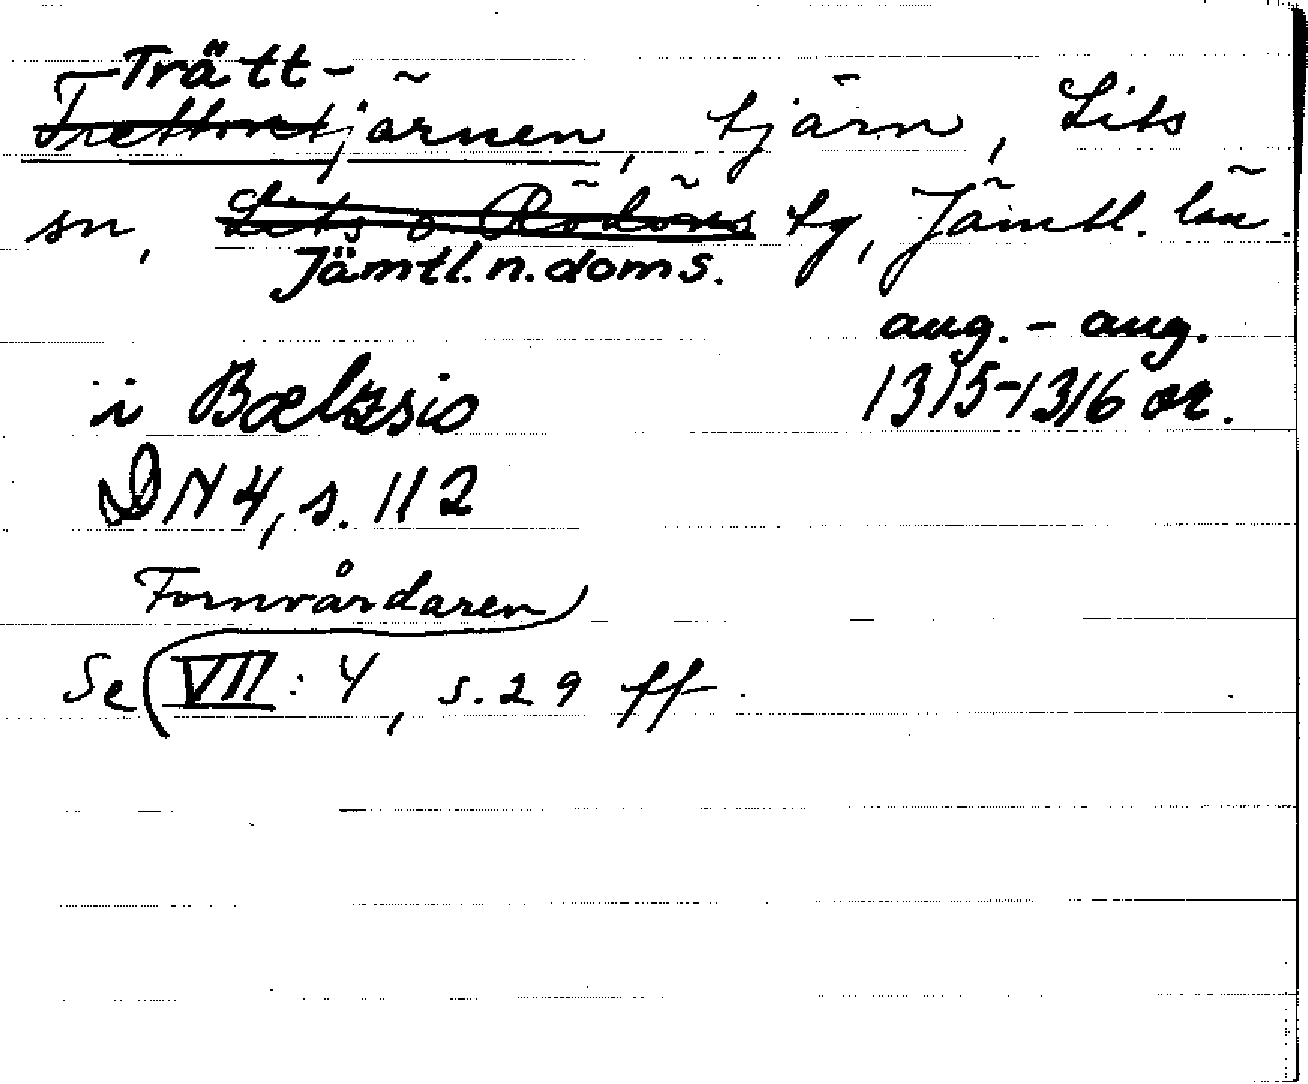 Trätt-
Trettontjärnen, tjärn, Lits
sn, Lits o. Rödöns tg, Jämtl. län.
Jämtl. n. doms.
aug. - aug.
i Bælzsio 1315-1316 or.
DN 4, s. 112
Fornvårdaren
Se VII: 4, s. 29 ff